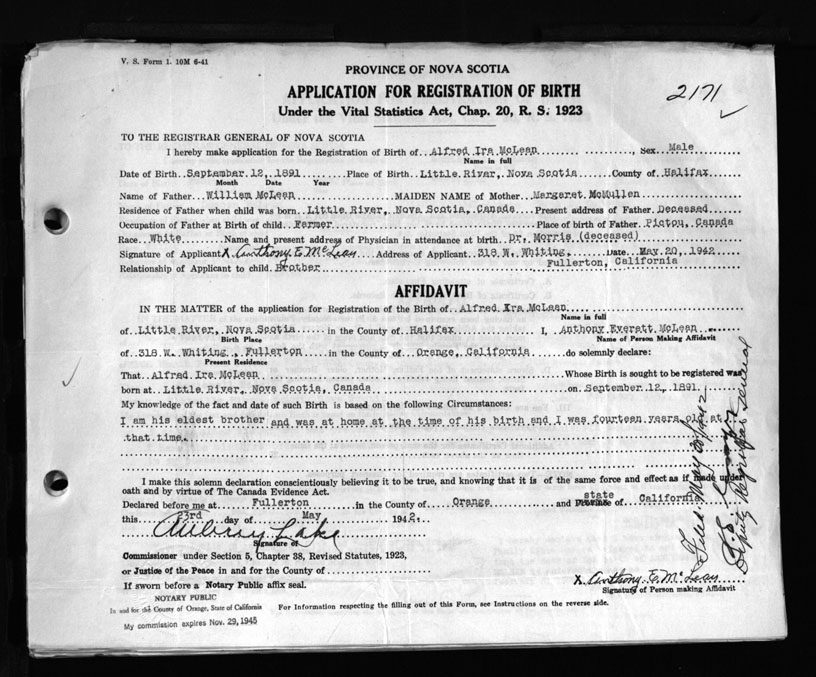 V. S. Form 1. 10M 6-41
PROVINCE OF NOVA SCOTIA
APPLICATION FOR REGISTRATION OF BIRTH
2171
Under the Vital Statistics Act, Chap. 20, R. S. 1923
TO THE REGISTRAR GENERAL OF NOVA SCOTIA
I hereby make application for the Registration of Birth of Alfred Ira McLean, Sex Male
Name in full
Date of Birth September 12, 1891 Place of Birth Little River, Nova Scotia County of Halifax
Month Date Year
Name of Father William McLean MAIDEN NAME of Mother Margaret McMullen
Residence of Father when child was born Little River, Nova Scotia, Canada Present address of Father Deceased
Occupation of Father at Birth of child Farmer Place of birth of Father Pictou, Canada
Race White Name and present address of Physician in attendance at birth Dr. Morris (deceased)
Signature of Applicant X Anthony E. McLean Address of Applicant 318 W. Whiting, Date May 20, 1942
Relationship of Applicant to child Brother Fullerton, California
AFFIDAVIT
IN THE MATTER of the application for Registration of Birth of Alfred Ira McLean
Name in full
of Little River, Nova Scotia in the County of Halifax I, Anthony Everett McLean
Birth Place Name of Person Making Affidavit
of 318 W. Whiting, Fullerton in the County of Orange, California do solemnly declare:
Present Residence
That Alfred Ira McLean Whose Birth is sought to be registered was
born at Little River, Nova Scotia, Canada on September 12, 1891
My knowledge of the fact and date of such Birth is based on the following Circumstances:
I am his eldest brother and was at home at the time of his birth and I was fourteen years old at
that time.
I make this solemn declaration conscientiously believing it to be true, and knowing that it is of the same force and effect as if made under
oath and by virtue of The Canada Evidence Act.
Declared before me at Fullerton in the County of Orange and state Province of California
this 23rd day of May 1942.
Aubrey Lake
Signature of
Commissioner under Section 5, Chapter 38, Revised Statutes, 1923,
or Justice of the Peace in and for the County of
X Anthony E. McLean
Signature of Person making Affidavit
If sworn before a Notary Public affix seal.
NOTARY PUBLIC
In and for the County of Orange, State of California
For Information respecting the filling out of this Form, see Instructions on the reverse side.
My commission expires Nov. 29, 1945
Deputy Registrar General